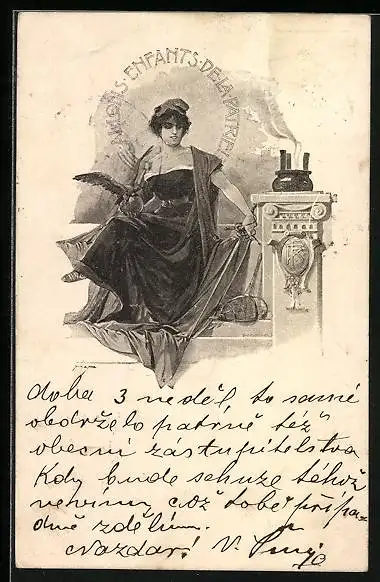 ALLONS·ENFANTS·DE·LA·PATRIE
RF
doba 3 neděl, to samé
obdrželo patrně též
obecní zástupitelstvo
Kdy bude schuze téhož
nevíme, což tobě přípa-
dně zdělím.
Nazdar! V.